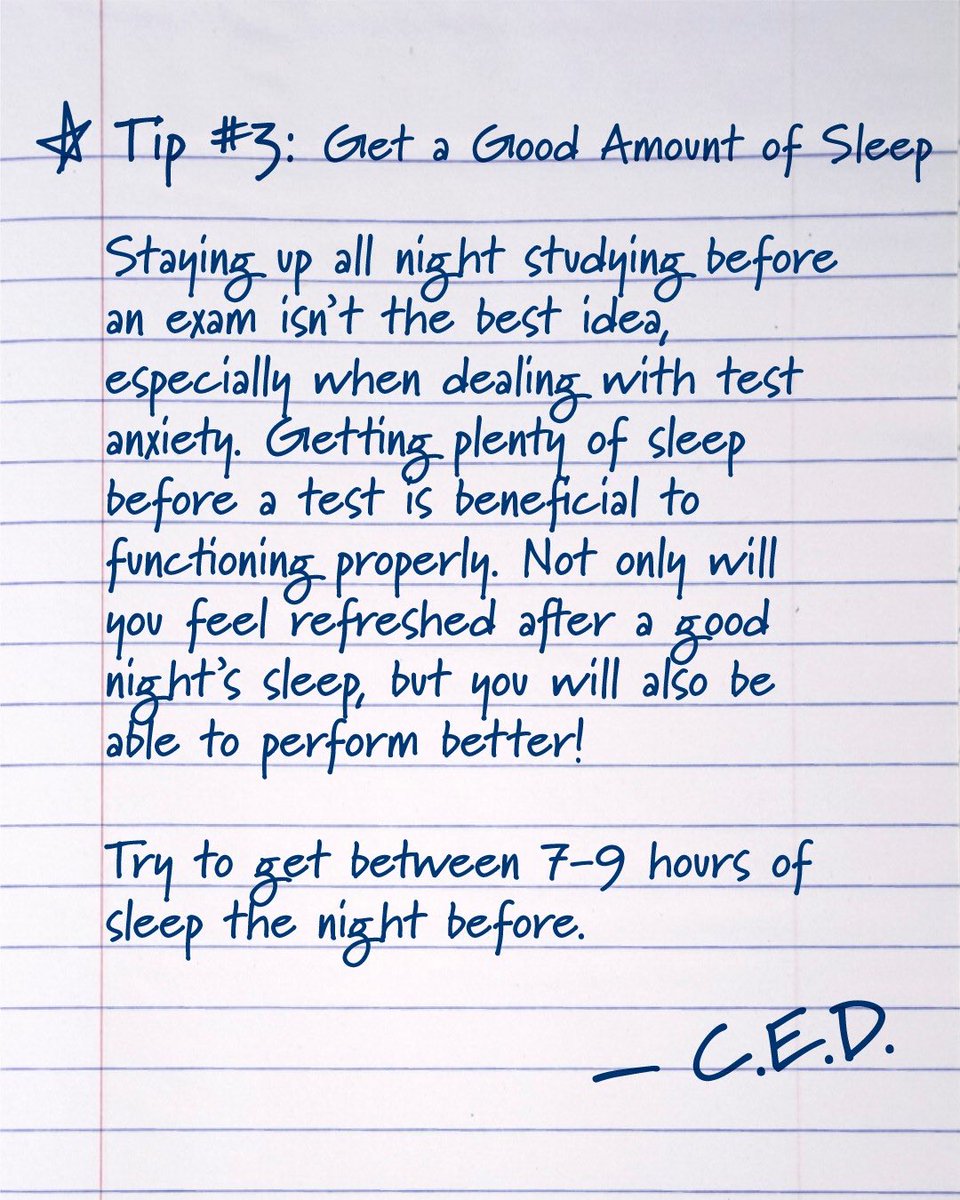 ☆ Tip #3: Get a Good Amount of Sleep
Staying up all night studying before
an exam isn't the best idea,
especially when dealing with test
anxiety. Getting plenty of sleep
before a test is beneficial to
functioning properly. Not only will
you feel refreshed after a good
night's sleep, but you will also be
able to perform better!
Try to get between 7-9 hours of
sleep the night before.
— C.E.D.